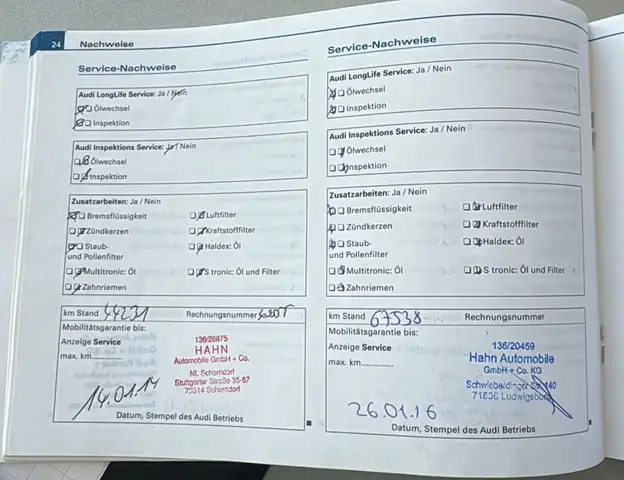 24 Nachweise
Service-Nachweise
Audi LongLife Service: Ja / Nein
Ölwechsel
Inspektion
Audi Inspektions Service: Ja / Nein
Ölwechsel
Inspektion
Zusatzarbeiten: Ja / Nein
Bremsflüssigkeit
Luftfilter
Zündkerzen
Kraftstofffilter
Staub-
und Pollenfilter
Haldex: Öl
Multitronic: Öl
S tronic: Öl und Filter
Zahnriemen
km Stand 44231
Rechnungsnummer
Mobilitätsgarantie bis:
Anzeige Service
max. km
136/26875
HAHN
Automobile GmbH + Co.
NL Schorndorf
Stuttgarter Straße 35-57
73614 Schorndorf
14.01.14
Datum, Stempel des Audi Betriebs
Service-Nachweise
Audi LongLife Service: Ja / Nein
Ölwechsel
Inspektion
Audi Inspektions Service: Ja / Nein
Ölwechsel
Inspektion
Zusatzarbeiten: Ja / Nein
Bremsflüssigkeit
Luftfilter
Zündkerzen
Kraftstofffilter
Staub-
und Pollenfilter
Haldex: Öl
Multitronic: Öl
S tronic: Öl und Filter
Zahnriemen
km Stand 67538
Rechnungsnummer
Mobilitätsgarantie bis:
Anzeige Service
max. km
136/20459
Hahn Automobile
GmbH + Co. KG
Schwieberdinger Str. 140
71636 Ludwigsburg
26.01.16
Datum, Stempel des Audi Betriebs